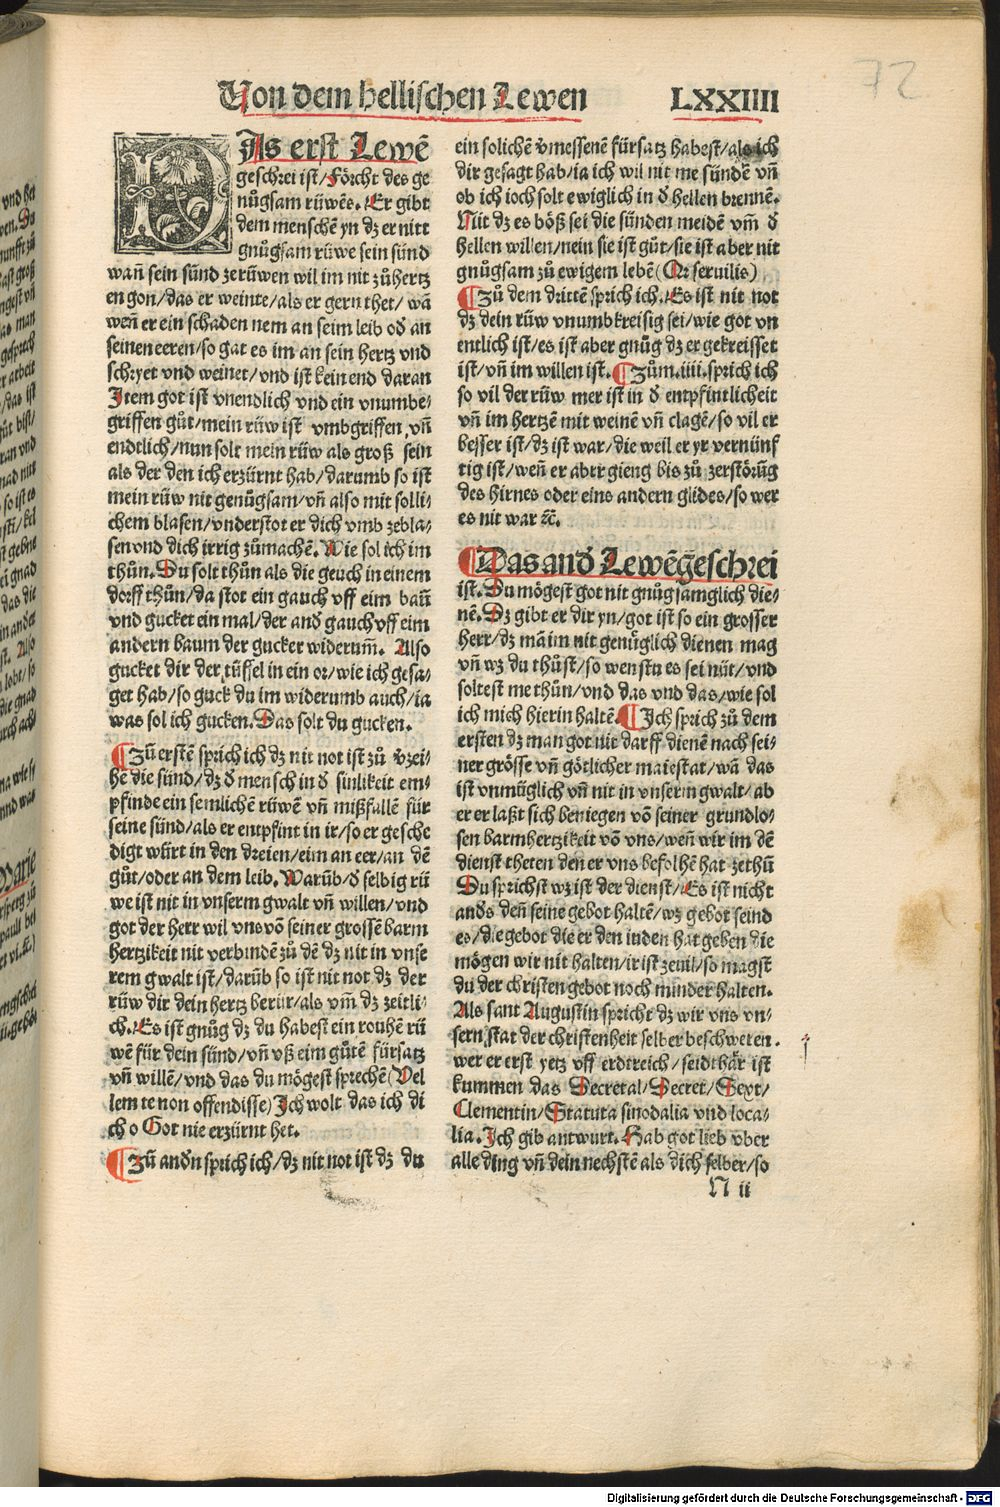 Von dem hellischen Lewen LXXIIII
DAs erst Lewē
geschrei ist/Förcht des ge
nůgsam rüwēs. Er gibt
dem menschē yn dz er nitt
gnůgsam rüwe sein sünd
wañ sein sünd zerüwen wil im nit zůhertz
en gon/das er weinte/als er gern thet/wā
weñ er ein schaden nem an seim leib oď an
seinen eeren/so gat es im an sein hertz vnd
schryet vnd weinet/vnd ist kein end daran
Item got ist vnendlich vnd ein vnumbe⸗
griffen gůt/mein rüw ist vmbgriffen vñ
endtlich/nun solt mein rüw als groß sein
als der den ich erzürnt hab/darumb so ist
mein rüw nit genůgsam/vñ also mit solli⸗
chem blasen/vnderstot er dich vmb zebla⸗
sen vnd dich irrig zůmachē. Wie sol ich im
thůn. Du solt thůn als die geuch in einem
dorff thůn/da stot ein gauch vff eim bauñ
vnd gucket ein mal/der anď gauch vff eim
andern baum der gucker widerum̄. Also
gucket dir der tüffel in ein or/wie ich gesa⸗
get hab/so guck du im widerumb auch/ia
was sol ich gucken. Das solt du gucken.
¶Zů erstē sprich ich dz nit not ist zů v̓zei⸗
hē die sünd/dz ď mensch in ď sinlikeit em⸗
pfinde ein semlichē rüwē vñ mißfallē für
seine sünd/als er entpfint in ir/so er gesche
digt würt in den dreien/eim an eer/an dē
gůt/oder an dem leib. Warūb/ď selbig rü
we ist nit in vnserm gwalt vñ willen/vnd
got der herr wil vns vō seiner grossē barm
hertzikeit nit verbindē zů dē dz nit in vnse
rem gwalt ist/darūb so ist nit not dz der
rüw dir dein hertz berür/als vm̄ dz zeitli⸗
ch. Es ist gnůg dz du habest ein rouhē rü
wē für dein sünd/vñ vß eim gůtē fürsatz
vñ willē/vnd das du mögest sprechē(Vel
lem te non offendisse)Ich wolt das ich di
ch o Got nie erzürnt het.
¶Zů anďn sprich ich/dz nit not ist dz du
ein solichē v̓messenē fürsatz habest/als ich
dir gesagt hab/ia ich wil nit me sündē vñ
ob ich ioch solt ewiglich in ď hellen brennē.
Nit dz es böß sei die sünden meidē vm̄ ď
hellen willen/nein sie ist gůt/sie ist aber nit
gnůgsam zů ewigem lebē( seruilis)
¶Zů dem drittē sprich ich. Es ist nit not
dz dein rüw vnumbkreisig sei/wie got vn
entlich ist/es ist aber gnůg dz er gekreisset
ist/vñ im willen ist. ¶Zům.iiii.sprich ich
so vil der rüw mer ist in ď entpfintlicheit
vñ im hertzē mit weinē vñ clagē/so vil er
besser ist/dz ist war/die weil er yr vernünf
tig ist/weñ er aber gieng bis zů zerstörūg
des hirnes oder eins andern glides/so wer
es nit war ꝛc̄.
¶Das anď Lewēgeschrei
ist. Du mögest got nit gnůgsamglich die⸗
nē. Dz gibt er dir yn/got ist so ein grosser
herr/dz mā im nit genůglich dienen mag
vñ wz du thůst/so wenstu es sei nüt/vnd
soltest me thůn/vnd das vnd das/wie sol
ich mich hierin haltē. ¶Ich sprich zů dem
ersten dz man got nit darff dienē nach sei⸗
ner grösse vñ götlicher maiestat/wā das
ist vnmüglich vñ nit in vnserm gwalt/ab
er er laßt sich beniegen vō seiner grundlo⸗
sen barmhertzikeit vō vns/weñ wir im dē
dienst theten den er vns befolhē hat zethů
Du sprichst wz ist der dienst/Es ist nicht
anďs deñ seine gebot haltē/wz gebot seind
es/die gebot die er den iuden hat geben die
mögen wir nit halten/ir ist zeuil/so magst
du der christen gebot noch minder halten.
Als sant Augustin spricht dz wir vns vn⸗
sern stat der christenheit selber beschweren.
wer er erst yetz vff erdtreich/seidthär ist
kummen das Decretal/Decret/Sext/
Clementin/Statuta sinodalia vnd loca⸗
lia. Ich gib antwurt. Hab got lieb vber
alle ding vñ dein nechstē als dich selber/so
N ii
72
Digitalisierung gefördert durch die Deutsche Forschungsgemeinschaft - DFG